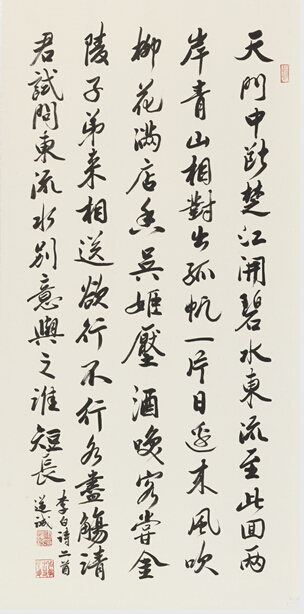 天門中斷楚江開碧水東流至此回兩
岸青山相對出孤帆一片日邊来風吹
柳花滿店香吳姬壓酒喚客嘗金
陵子弟来相送欲行不行各盡觴請
君試問東流水別意與之誰短長
李白詩二首